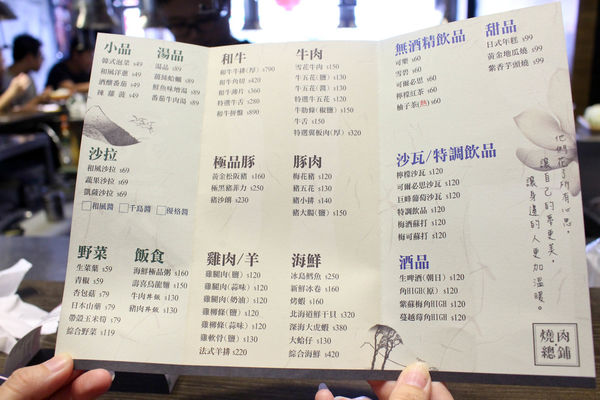 小品
韓式泡菜 $49
和風洋蔥 $49
酒釀番茄 $49
辣蘿蔔 $49
湯品
湯品 $89
薑絲蛤蠣 $89
鮮魚味增湯 $89
番茄牛肉湯 $89
沙拉
和風沙拉 $69
蔬果沙拉 $69
凱薩沙拉 $69
和風醬 千島醬 優格醬
野菜
生菜葉 $59
青椒 $59
杏包菇 $79
日本山藥 $79
帶殼玉米筍 $79
綜合野菜 $119
飯食
海鮮極品粥 $160
壽喜烏龍麵 $150
牛肉丼飯 $130
豬肉丼飯 $130
和牛
和牛牛排(厚) $790
和牛角切 $420
和牛薄片 $360
特選牛舌 $280
和牛拼盤 $890
極品豚
黃金松阪豬 $160
極黑豬菲力 $250
豬沙朗 $230
雞肉/羊
雞腿肉(鹽) $120
雞腿肉(蒜味) $120
雞腿肉(奶油) $120
雞柳條(鹽) $120
雞柳條(蒜味) $120
雞軟骨(鹽) $130
法式羊排 $220
牛肉
雪花牛肉 $150
牛五花(鹽) $130
牛五花(醬) $130
特選牛五花 $120
牛肋條(椒鹽) $150
牛舌 $150
特選裏板肉(厚) $320
豚肉
梅花豬 $120
豬五花 $130
豬小排 $140
豬大腸(鹽) $150
海鮮
冰島鱈魚 $250
新鮮冰卷 $160
烤蝦 $160
北海道鮮干貝 $320
深海大虎蝦 $380
大蛤仔 $150
綜合海鮮 $420
無酒精飲品
可樂 $60
雪碧 $60
可爾必思 $60
檸檬紅茶 $60
柚子茶(熱) $60
甜品
日式年糕 $99
黃金地瓜燒 $99
紫香芋頭燒 $99
沙瓦/特調飲品
檸檬沙瓦 $120
可爾必思沙瓦 $120
巨峰葡萄沙瓦 $120
特調飲品 $120
梅酒蘇打 $120
梅可蘇打 $120
酒品
生啤酒(朝日) $120
角HIGH(原) $120
紫蘇梅角HIGH $120
蔓越莓角HIGH $120
他們花了所有心思，
讓自己的夢更美，
讓身邊的人更加溫暖。
燒肉
總鋪